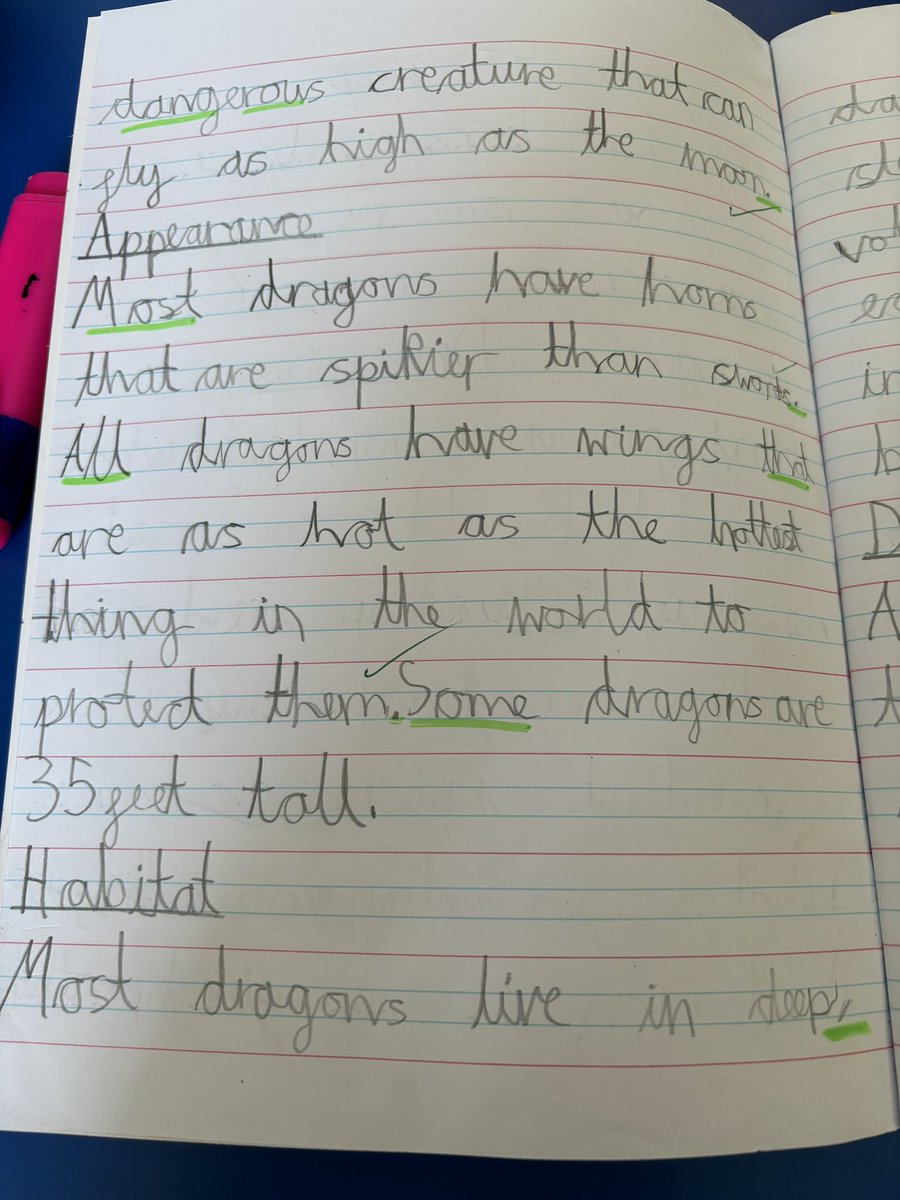 dangerous creature that can
fly as high as the moon.
Appearance
Most dragons have horns
that are spikier than swords.
All dragons have wings that
are as hot as the hottest
thing in the world to
protect them. Some dragons are
35 feet tall.
Habitat
Most dragons live in deep,